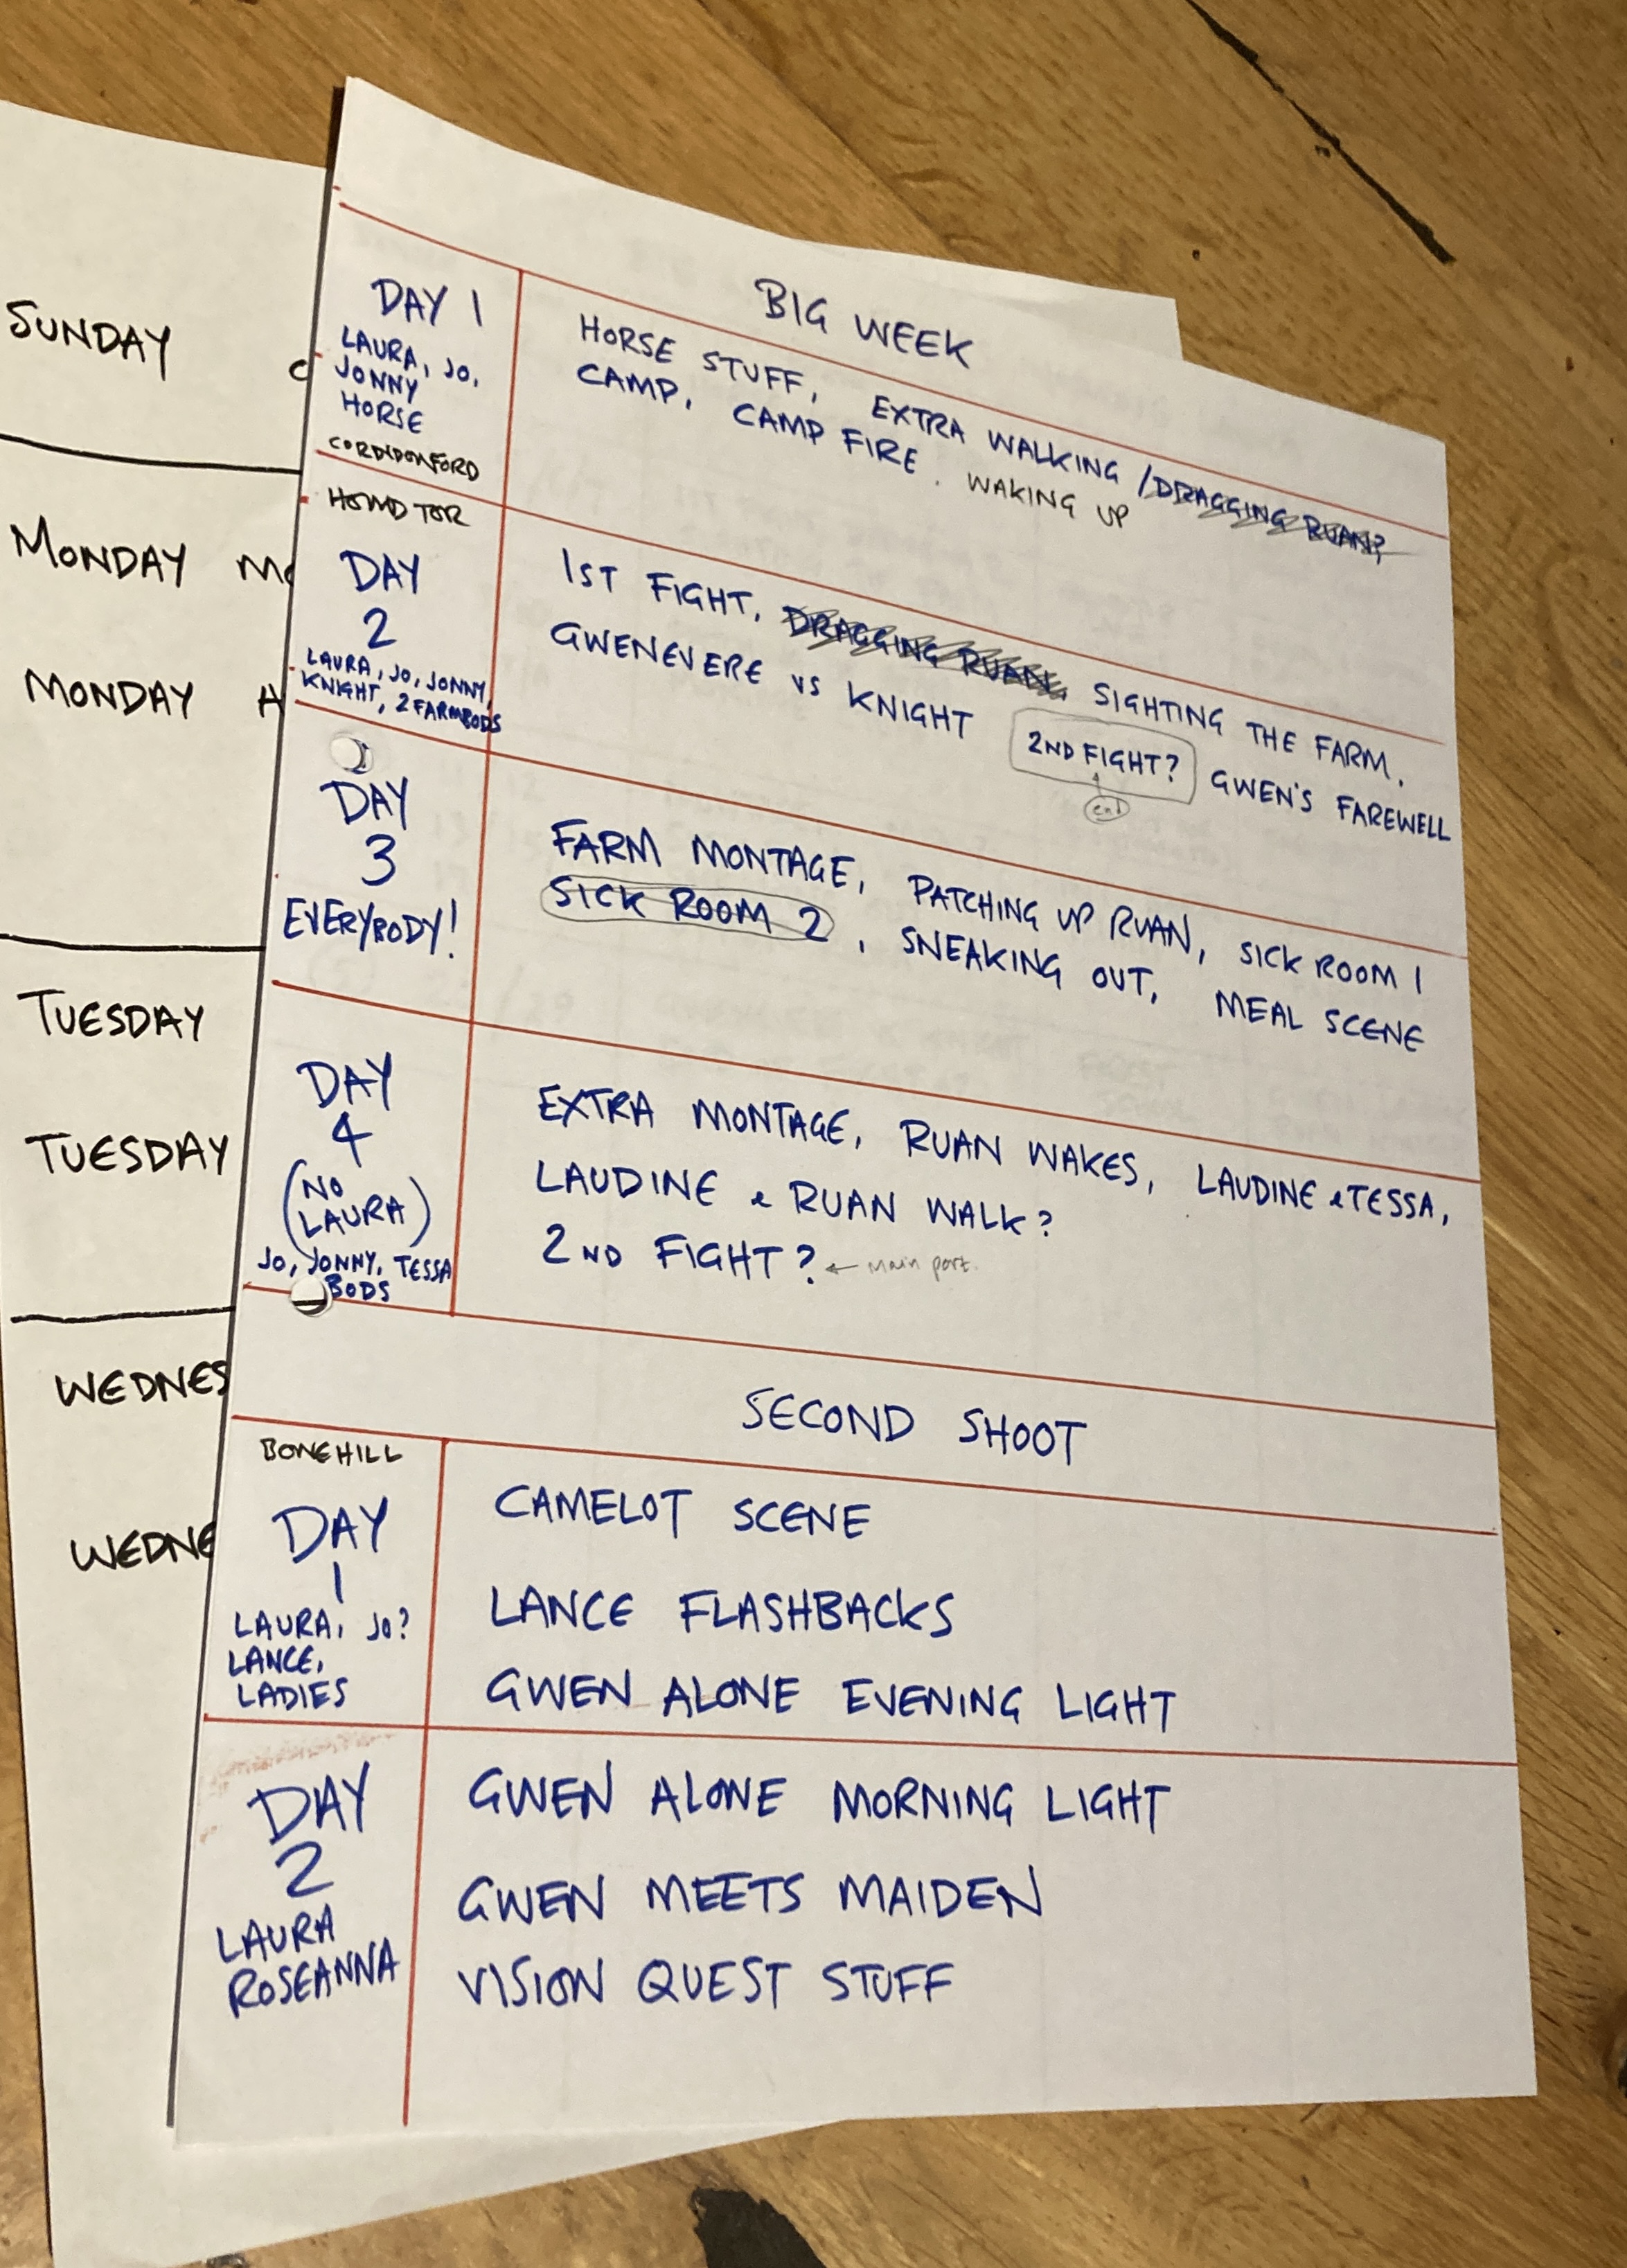 SUNDAY
MONDAY
MONDAY
TUESDAY
TUESDAY
WEDNES
WEDNE
BIG WEEK
DAY 1
LAURA, JO,
JONNY
HORSE
HORSE STUFF, EXTRA WALKING / DRAGGING RUAN?
CAMP, CAMP FIRE. WAKING UP
HOUND TOR
DAY
2
LAURA, JO, JONNY,
KNIGHT, 2 FARMBODS
1ST FIGHT, DRAGGING RUAN, SIGHTING THE FARM.
GWENEVERE VS KNIGHT 2ND FIGHT? GWEN'S FAREWELL
end
DAY
3
EVERYBODY!
FARM MONTAGE, PATCHING UP RUAN, SICK ROOM 1
SICK ROOM 2, SNEAKING OUT, MEAL SCENE
DAY
4
(NO
LAURA)
JO, JONNY, TESSA
BODS
EXTRA MONTAGE, RUAN WAKES, LAUDINE & TESSA,
LAUDINE & RUAN WALK?
2ND FIGHT? ← main part.
SECOND SHOOT
BONEHILL
DAY
1
LAURA, JO?
LANCE,
LADIES
CAMELOT SCENE
LANCE FLASHBACKS
GWEN ALONE EVENING LIGHT
DAY
2
LAURA
ROSEANNA
GWEN ALONE MORNING LIGHT
GWEN MEETS MAIDEN
VISION QUEST STUFF